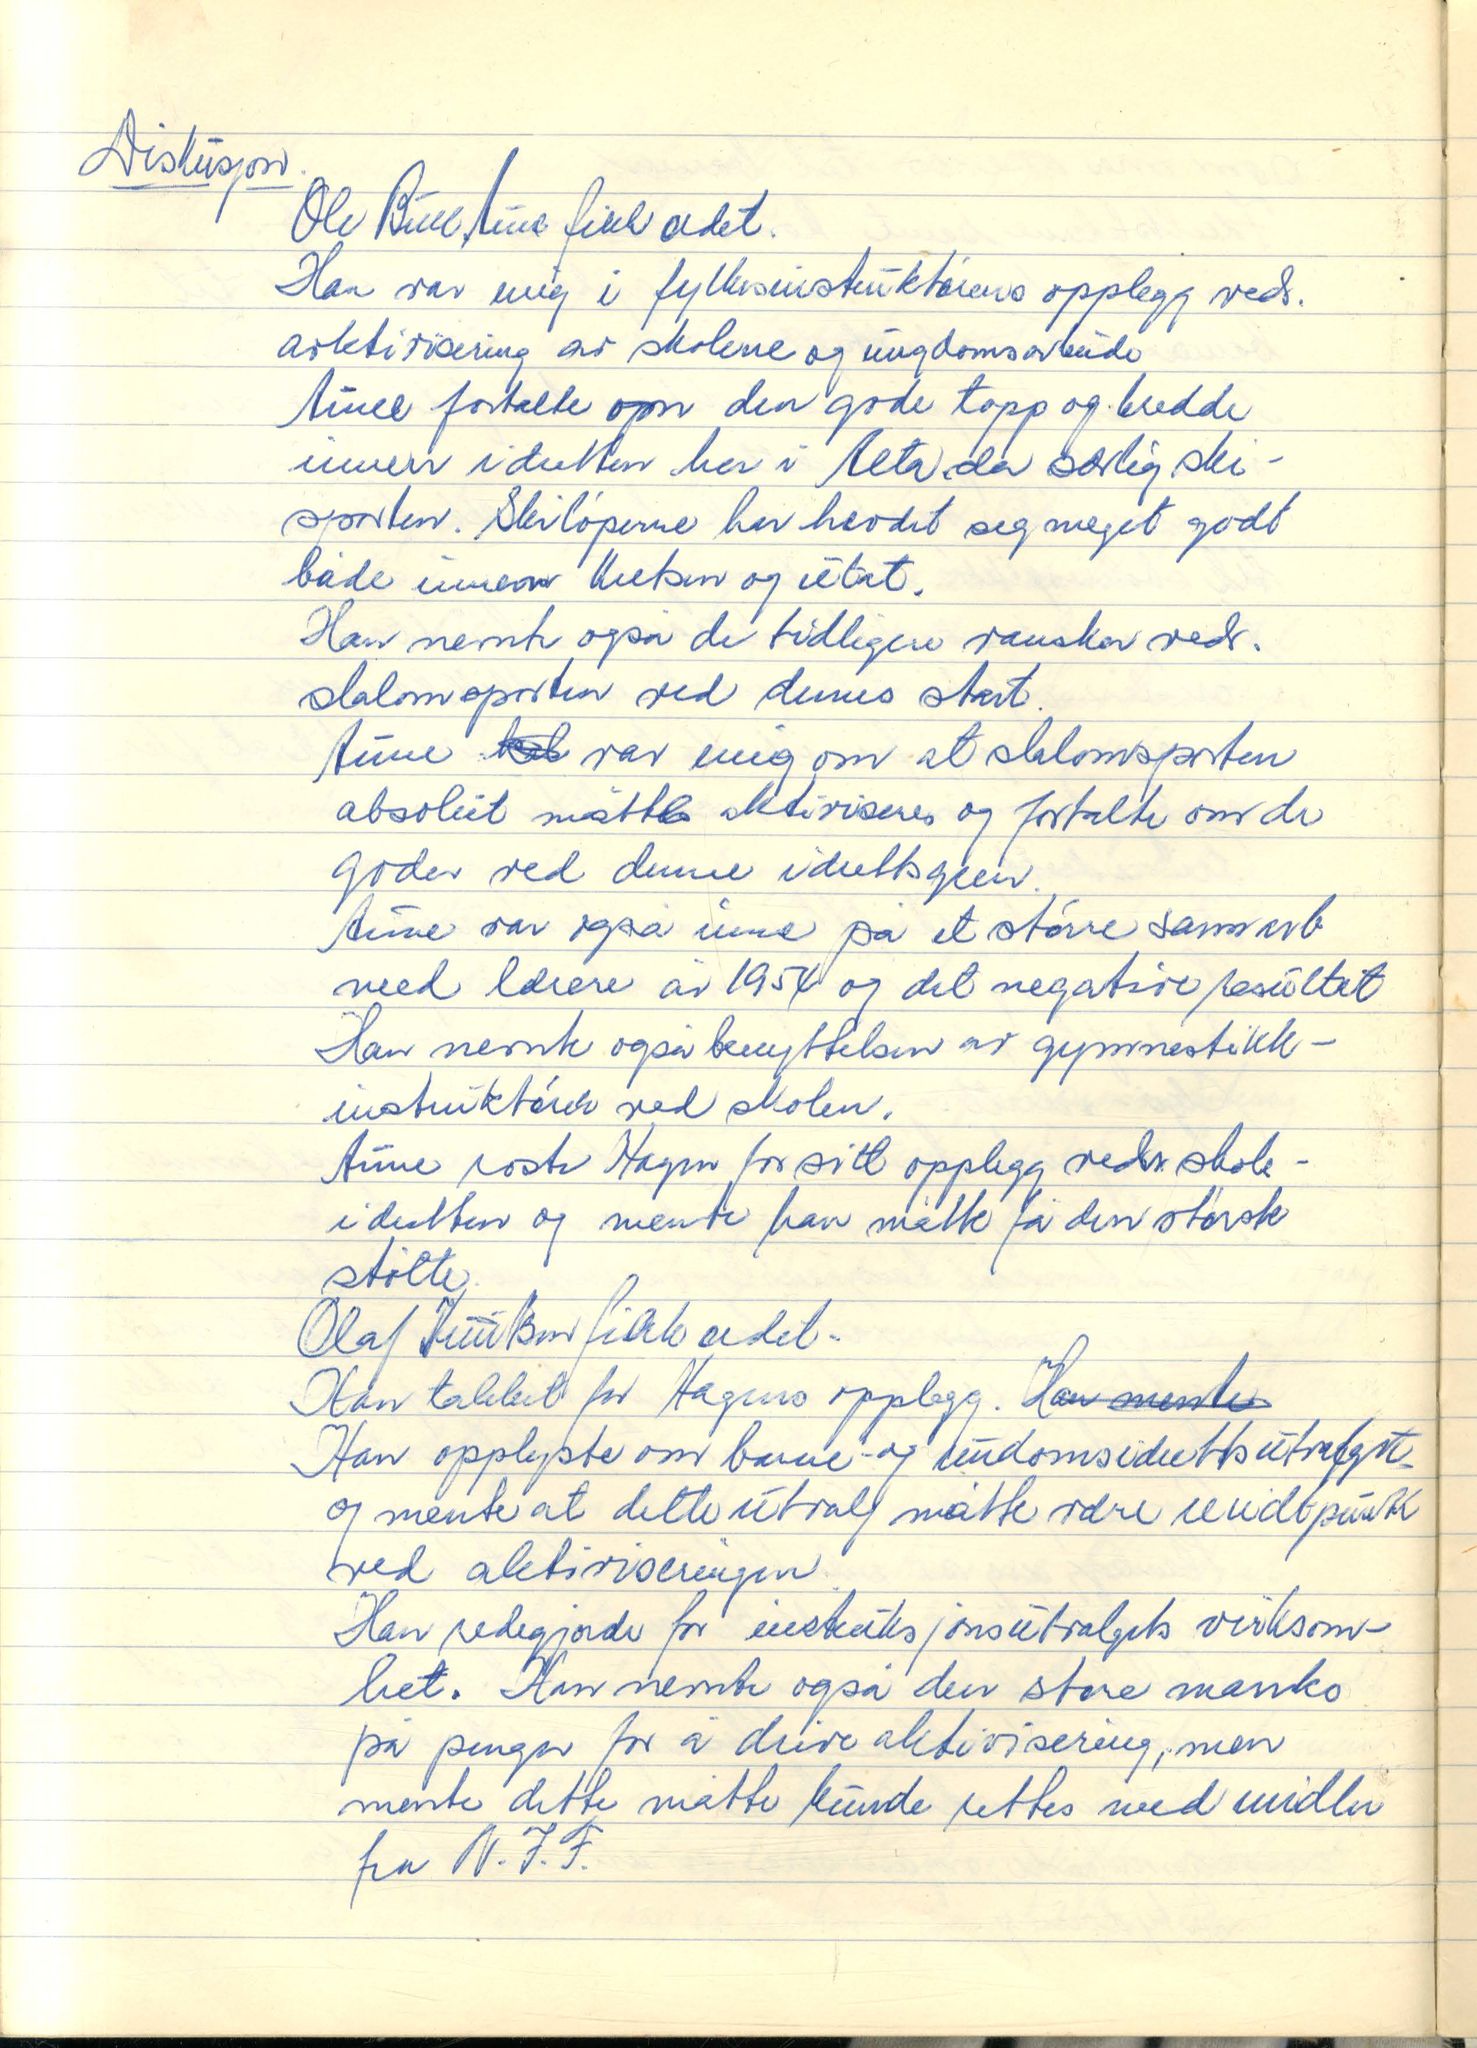 Diskusjon.
Ole Bull Aune fikk ordet.
Han var enig i fylkesinstruktørens opplegg vedr.
arktivisering av skolene og ungdomsarbeide
Aune fortalte om den gode topp og bredde
innen idretten her i Alta, da særlig ski-
sporten. Skiløperne har hevdet seg meget godt
både innen kretsen og utat.
Han nevnte også de tidligere vansker vedr.
slalomsporten ved dennes start.
Aune var enig om at slalomsporten
absolut måtte aktiviseres og fortalte om de
goder ved denne idrettsgren.
Aune var også inne på et større samarb
med lærere år 1954 og det negative resultat
Han nevnte også benyttelsen av gymnastikk-
instruktører ved skolen.
Aune roste Hagen for sitt opplegg vedr. skole-
idretten og mente han måtte få den største
støtte.
Olaf Knutsen fikk ordet.
Han takket for Hagens opplegg. Han mente
Han opplyste om barne- og undomsidrettsutvalget
og mente at dette utvalg måtte være midtpunkt
ved aktiviseringen.
Han redegjorde for instruksjonsutvalgets virksom-
het. Han nevnte også den store manko
på penger for å drive aktivisering, men
mente dette måtte kunde rettes med midler
fra N.I.F.